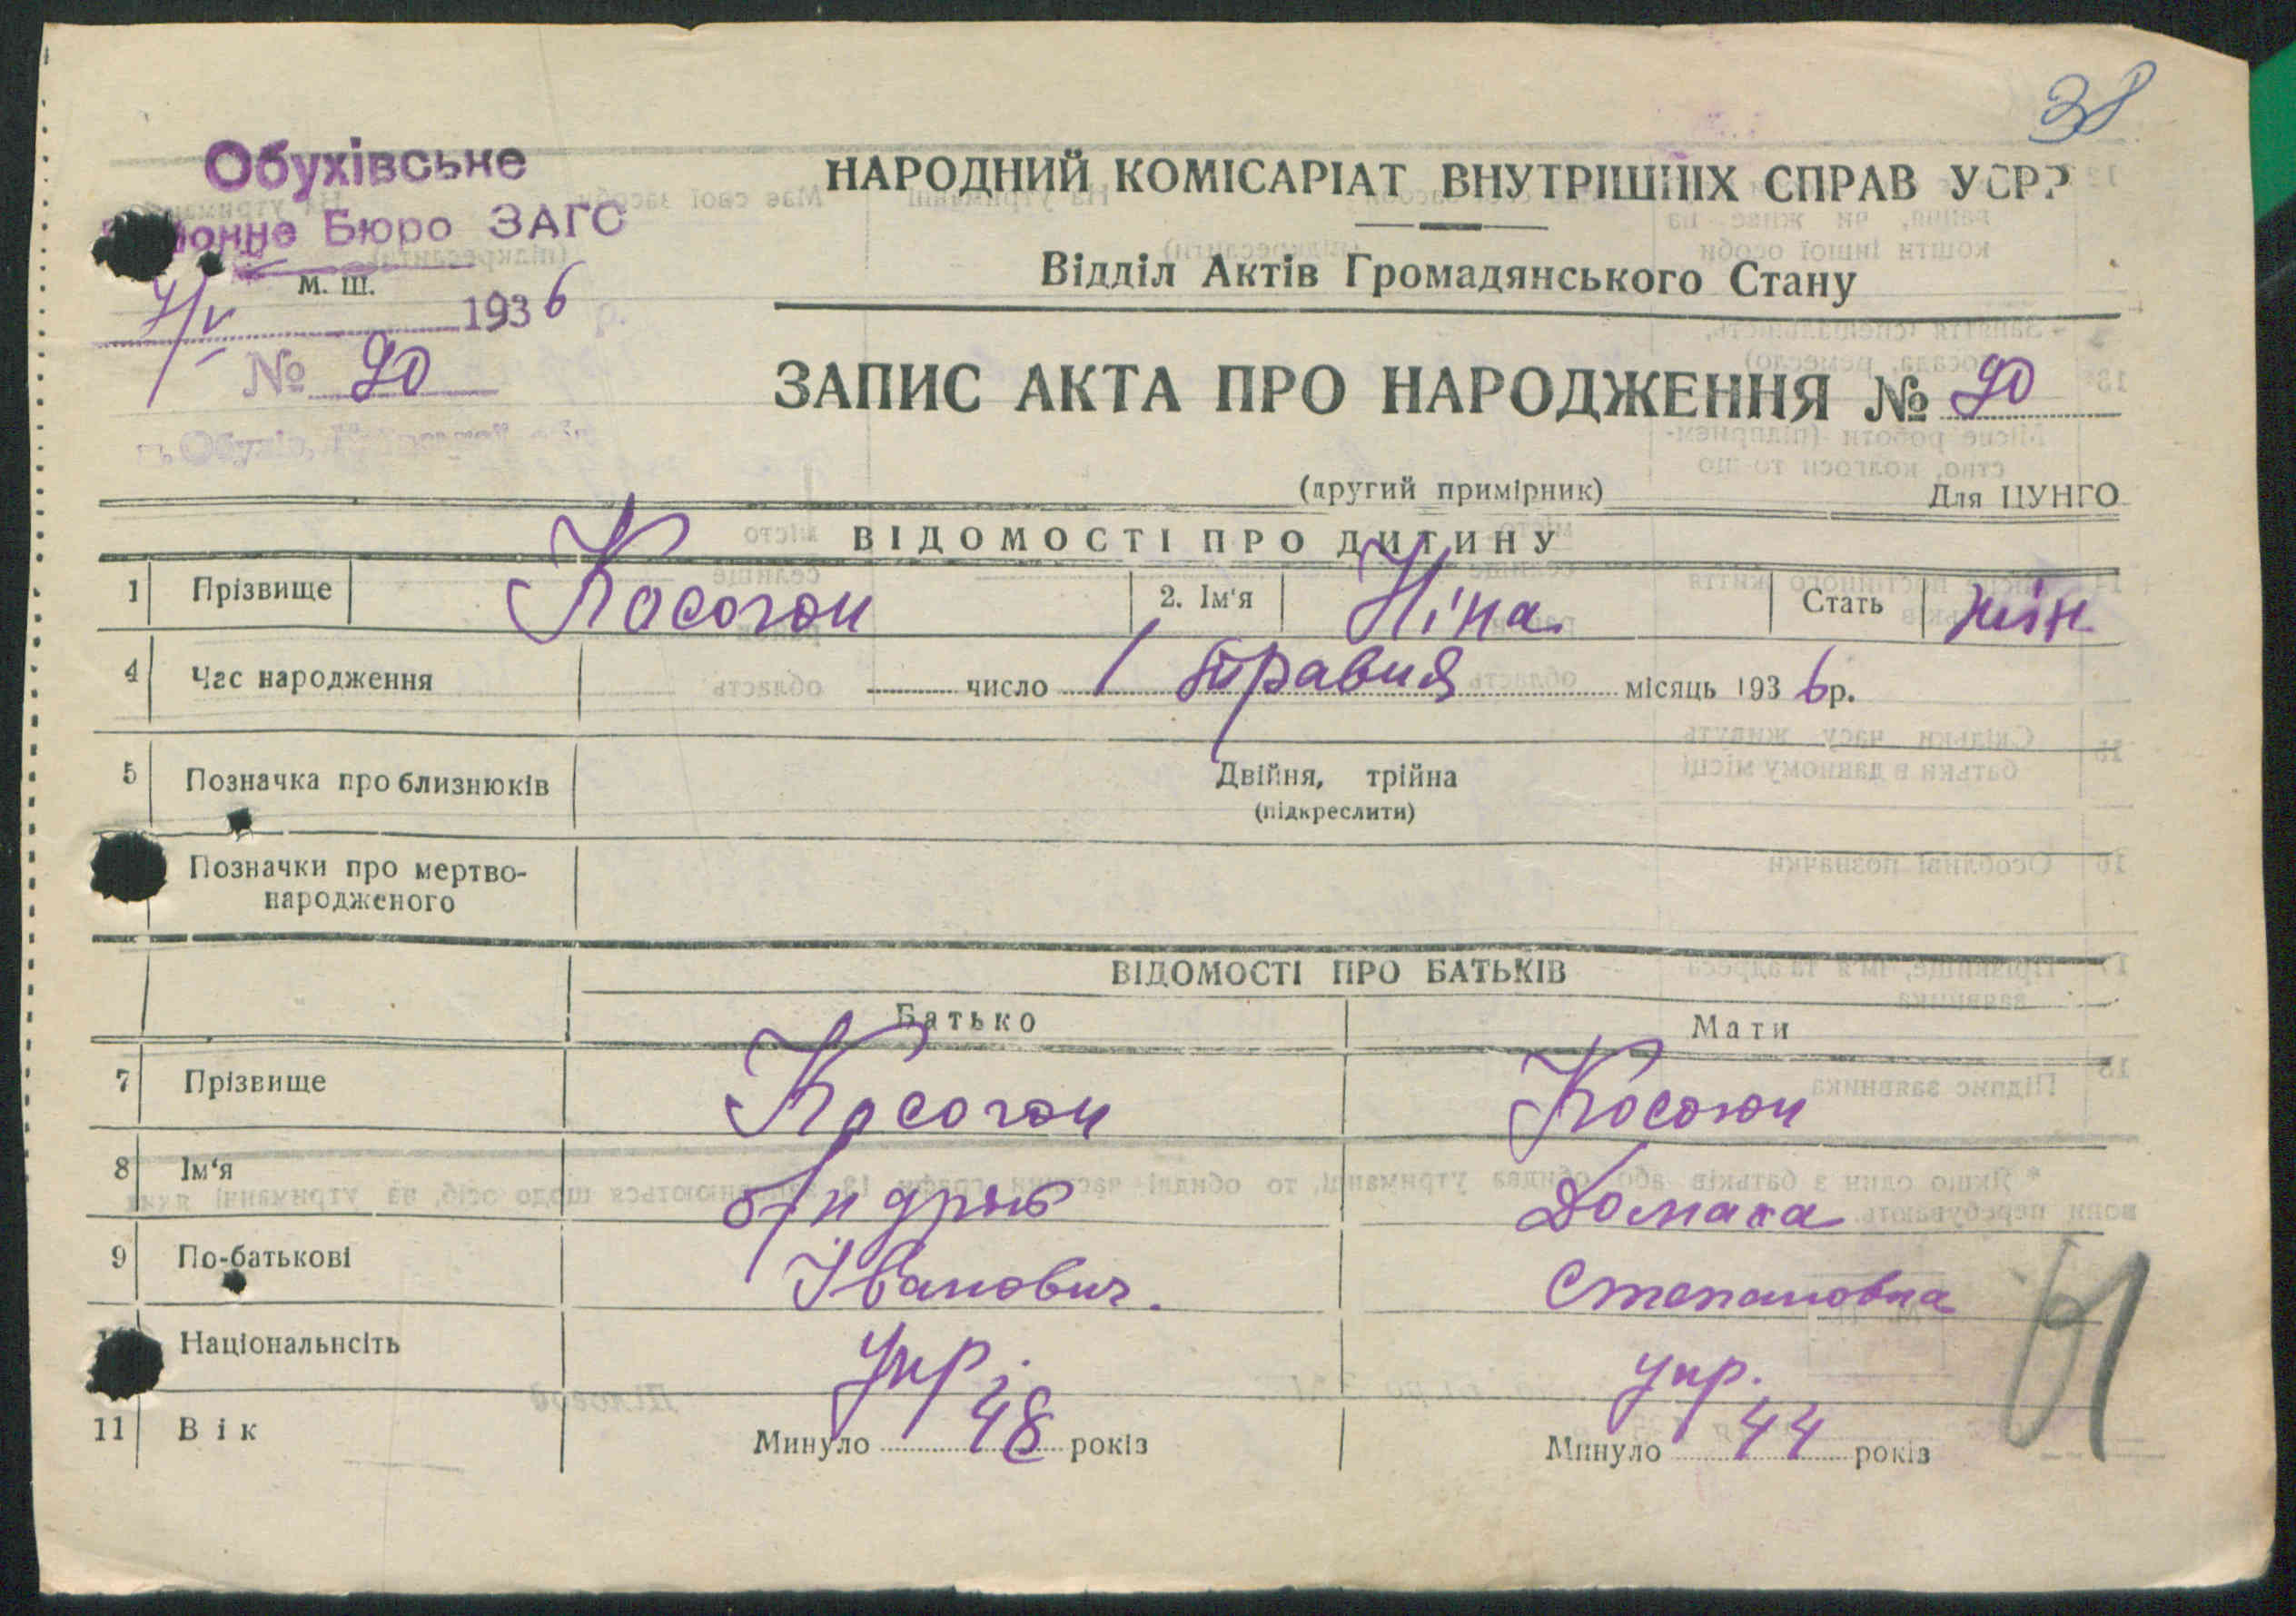 38
Обухівське
Районне Бюро ЗАГС
М. Ш.
4/V 1936
№ 90
м. Обухів,
НАРОДНИЙ КОМІСАРІАТ ВНУТРІШНІХ СПРАВ УСРР
Відділ Актів Громадянського Стану
ЗАПИС АКТА ПРО НАРОДЖЕННЯ № 90
(другий примірник) Для ЦУНГО
ВІДОМОСТІ ПРО ДИТИНУ
1 Прізвище Косогон 2. Ім'я Ніна Стать жін
4 Час народження число 1 травня місяць 1936 р.
5 Позначка про близнюків Двійня, трійна
(підкреслити)
Позначки про мертво-
народженого
ВІДОМОСТІ ПРО БАТЬКІВ
Батько Мати
7 Прізвище Косогон Косогон
8 Ім'я Андрій Домаха
9 По-батькові Іванович. Степановна
Національнсіть укр. укр.
11 Вік Минуло 48 років Минуло 44 років